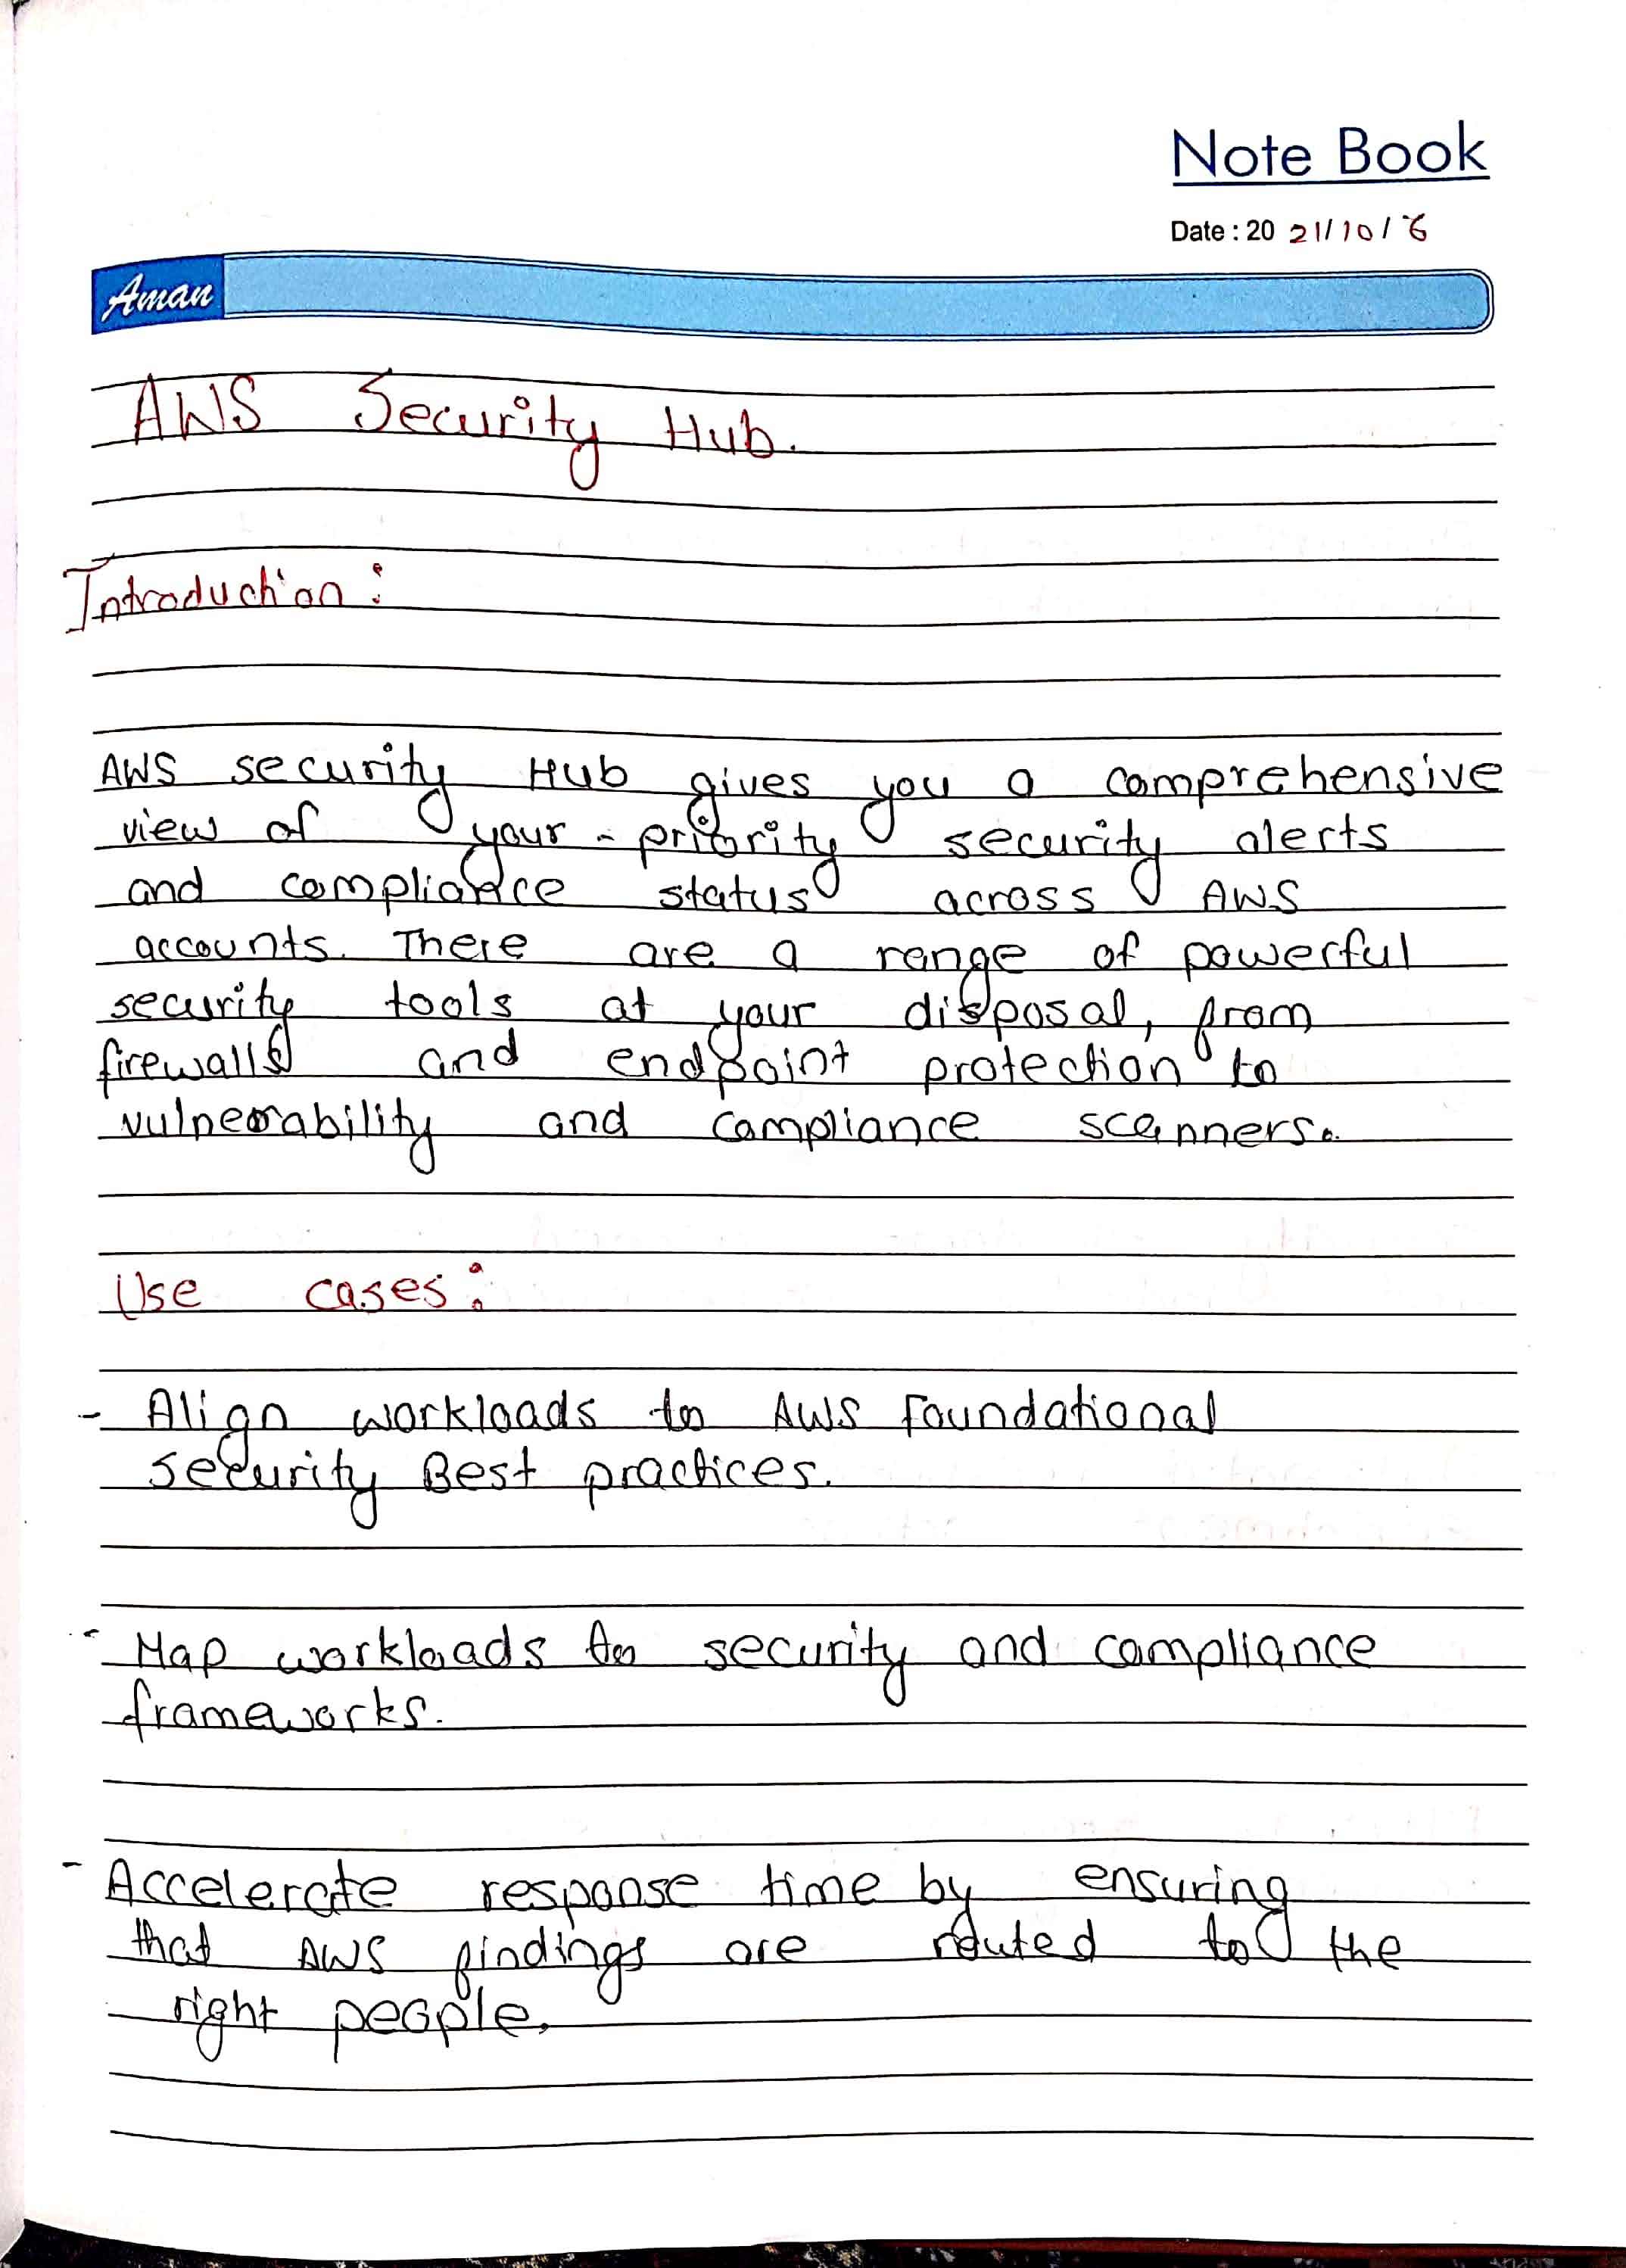 Note Book
Date : 20 21/10/6
Aman
AWS Security Hub.
Introduction :
AWS security Hub gives you a comprehensive
view of your - priority security alerts
and compliance status across AWS
accounts. There are a range of powerful
security tools at your disposal, from
firewalls and endpoint protection to
vulnerability and compliance scanners.
Use cases :
- Align workloads to AWS Foundational
security Best practices.
- Map workloads to security and compliance
frameworks.
- Accelerate response time by ensuring
that AWS findings are routed to the
right people.